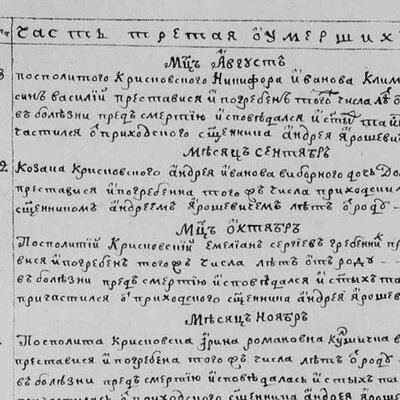 часть третая оумерших
Мцъ Августъ
посполитого Крисновского Никифора Иванова Клим
синъ василий преставися и погребенъ того числа лѣ
въ болѣзни предъ смертию исповѣдался и стых тай
частился от приходского сщенника андрея Ярошеви
Мѣсяцъ сентябрь
Козака Крисновского андрея иванова виборного дочь До
преставися и погребенна того жъ числа приходским
сщенником андреемъ Ярошевичемъ лѣтъ от роду
Мцъ октябрь
Посполитий Крисновский емелиан сергеевъ гребенни пр
вися и погребен того жъ числа лѣтъ отъ роду
въ болѣзни предъ смертию исповѣдался и стыхъ та
причастился от приходского сщенника андрея яроше
Мѣсяцъ ноябрь
Посполита Крисновска ирина романовна
преставися и погребена того жъ числа лѣтъ от роду
въ болѣзни предъ смертию исповѣдалась и стыхъ та
приходского сщенника андрея